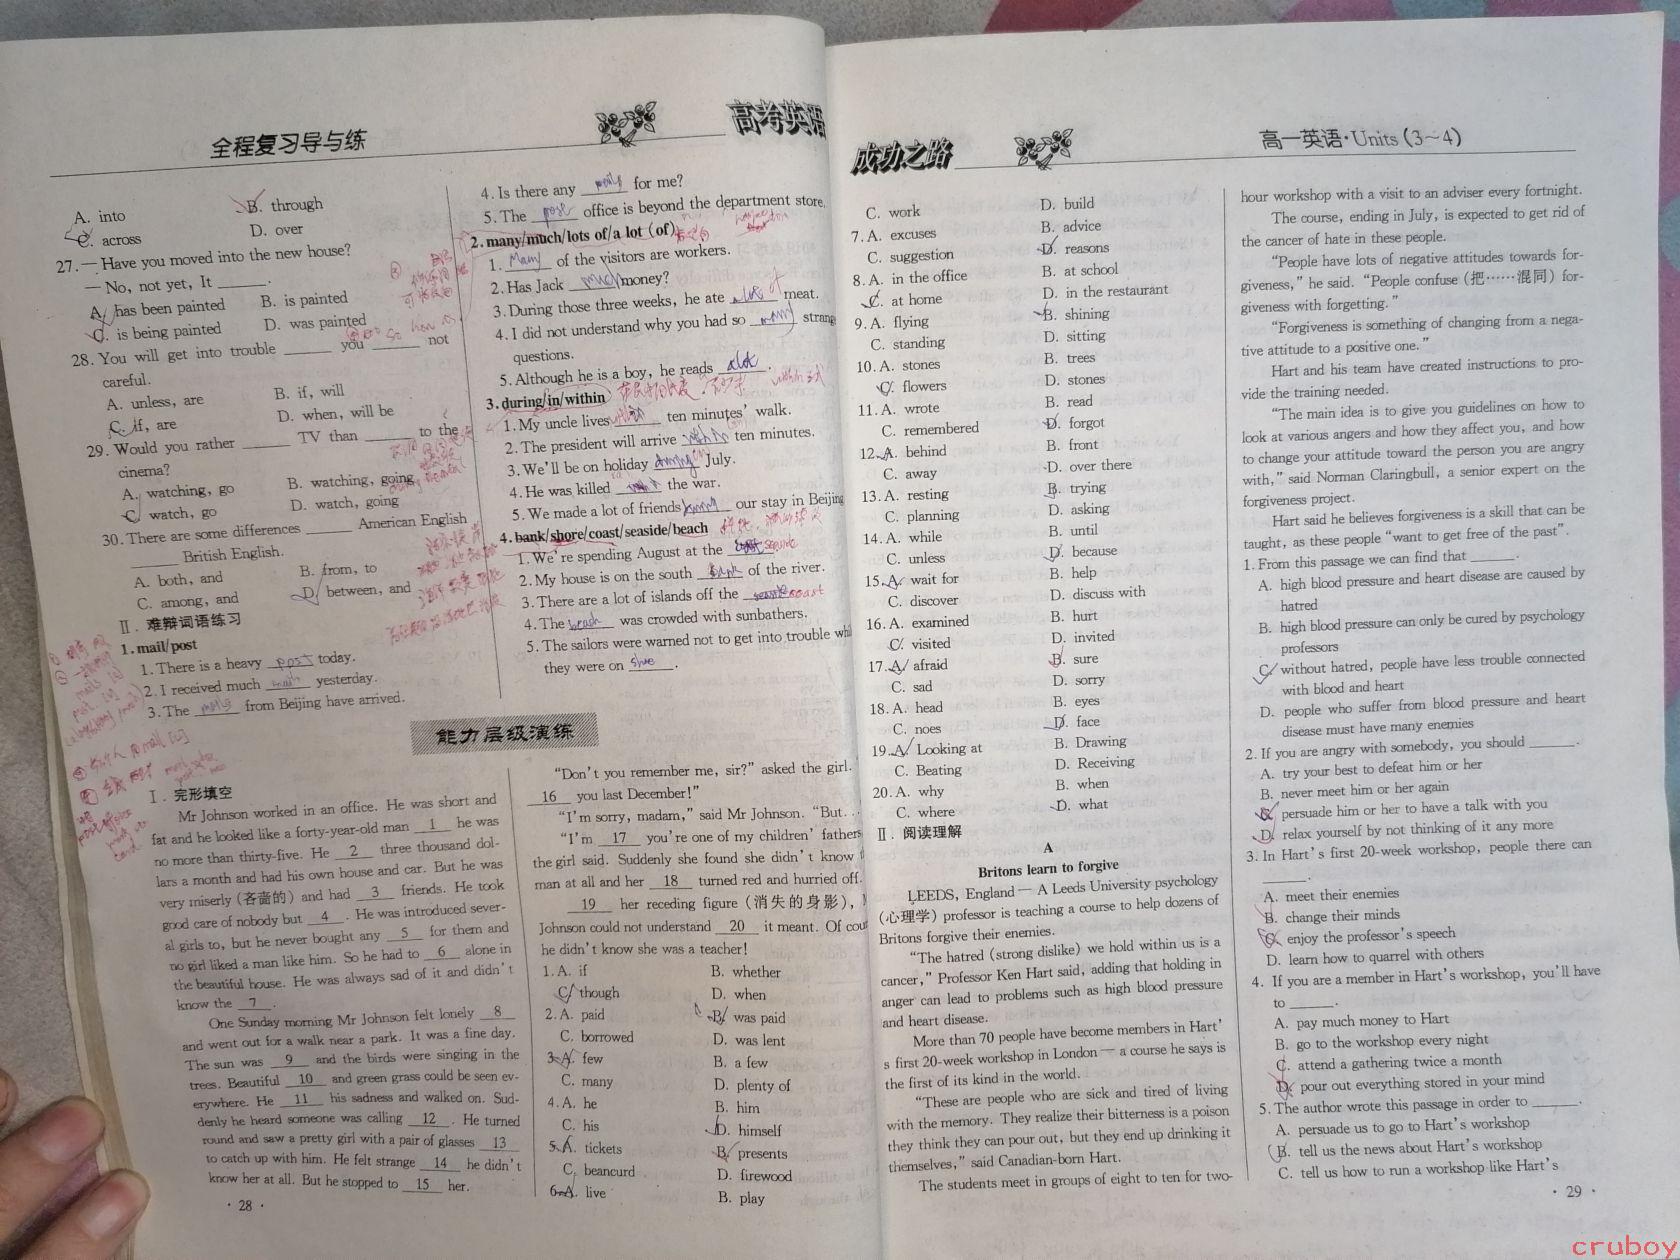 全程复习导与练
高考英语
A. into B. through
C. across D. over
27.— Have you moved into the new house?
— No, not yet, It ______.
A. has been painted B. is painted
C. is being painted D. was painted
28. You will get into trouble ______ you ______ not
careful.
A. unless, are B. if, will
C. if, are D. when, will be
29. Would you rather ______ TV than ______ to the
cinema?
A. watching, go B. watching, going
C. watch, go D. watch, going
30. There are some differences ______ American English
______ British English.
A. both, and B. from, to
C. among, and D. between, and
Ⅱ. 难辩词语练习
1. mail/post
1. There is a heavy post today.
2. I received much mail yesterday.
3. The mails from Beijing have arrived.
4. Is there any ______ for me?
5. The post office is beyond the department store.
2. many/much/lots of/a lot (of)
1. Many of the visitors are workers.
2. Has Jack much money?
3. During those three weeks, he ate a lot of meat.
4. I did not understand why you had so many strang
questions.
5. Although he is a boy, he reads a lot.
3. during/in/within
1. My uncle lives within ten minutes' walk.
2. The president will arrive within ten minutes.
3. We'll be on holiday during July.
4. He was killed ______ the war.
5. We made a lot of friends during our stay in Beijing
4. bank/shore/coast/seaside/beach
1. We're spending August at the seaside
2. My house is on the south bank of the river.
3. There are a lot of islands off the coast
4. The beach was crowded with sunbathers.
5. The sailors were warned not to get into trouble whi
they were on ______.
能力层级演练
Ⅰ. 完形填空
Mr Johnson worked in an office. He was short and
fat and he looked like a forty-year-old man 1 he was
no more than thirty-five. He 2 three thousand dol-
lars a month and had his own house and car. But he was
very miserly (吝啬的) and had 3 friends. He took
good care of nobody but 4 . He was introduced sever-
al girls to, but he never bought any 5 for them and
no girl liked a man like him. So he had to 6 alone in
the beautiful house. He was always sad of it and didn't
know the 7 .
One Sunday morning Mr Johnson felt lonely 8
and went out for a walk near a park. It was a fine day.
The sun was 9 and the birds were singing in the
trees. Beautiful 10 and green grass could be seen ev-
erywhere. He 11 his sadness and walked on. Sud-
denly he heard someone was calling 12 . He turned
round and saw a pretty girl with a pair of glasses 13
to catch up with him. He felt strange 14 he didn't
know her at all. But he stopped to 15 her.
· 28 ·
"Don't you remember me, sir?" asked the girl.
16 you last December!"
"I'm sorry, madam," said Mr Johnson. "But. .
"I'm 17 you're one of my children' fathers
the girl said. Suddenly she found she didn't know
man at all and her 18 turned red and hurried off.
19 her receding figure (消失的身影),
Johnson could not understand 20 it meant. Of cou
he didn't know she was a teacher!
1. A. if B. whether
C. though D. when
2. A. paid B. was paid
C. borrowed D. was lent
3. A. few B. a few
C. many D. plenty of
4. A. he B. him
C. his D. himself
5. A. tickets B. presents
C. beancurd D. firewood
6. A. live B. play
成功之路
高一英语·Units (3~4)
C. work D. build
7. A. excuses B. advice
C. suggestion D. reasons
8. A. in the office B. at school
C. at home D. in the restaurant
9. A. flying B. shining
C. standing D. sitting
10. A. stones B. trees
C. flowers D. stones
11. A. wrote B. read
C. remembered D. forgot
12. A. behind B. front
C. away D. over there
13. A. resting B. trying
C. planning D. asking
14. A. while B. until
C. unless D. because
15. A. wait for B. help
C. discover D. discuss with
16. A. examined B. hurt
C. visited D. invited
17. A. afraid B. sure
C. sad D. sorry
18. A. head B. eyes
C. noes D. face
19. A. Looking at B. Drawing
C. Beating D. Receiving
20. A. why B. when
C. where D. what
Ⅱ. 阅读理解
A
Britons learn to forgive
LEEDS, England — A Leeds University psychology
(心理学) professor is teaching a course to help dozens of
Britons forgive their enemies.
"The hatred (strong dislike) we hold within us is a
cancer," Professor Ken Hart said, adding that holding in
anger can lead to problems such as high blood pressure
and heart disease.
More than 70 people have become members in Hart'
s first 20-week workshop in London — a course he says is
the first of its kind in the world.
"These are people who are sick and tired of living
with the memory. They realize their bitterness is a poison
they think they can pour out, but they end up drinking it
themselves," said Canadian-born Hart.
The students meet in groups of eight to ten for two-
hour workshop with a visit to an adviser every fortnight.
The course, ending in July, is expected to get rid of
the cancer of hate in these people.
"People have lots of negative attitudes towards for-
giveness," he said. "People confuse (把……混同) for-
giveness with forgetting."
"Forgiveness is something of changing from a nega-
tive attitude to a positive one."
Hart and his team have created instructions to pro-
vide the training needed.
"The main idea is to give you guidelines on how to
look at various angers and how they affect you, and how
to change your attitude toward the person you are angry
with," said Norman Claringbull, a senior expert on the
forgiveness project.
Hart said he believes forgiveness is a skill that can be
taught, as these people "want to get free of the past".
1. From this passage we can find that ______.
A. high blood pressure and heart disease are caused by
hatred
B. high blood pressure can only be cured by psychology
professors
C. without hatred, people have less trouble connected
with blood and heart
D. people who suffer from blood pressure and heart
disease must have many enemies
2. If you are angry with somebody, you should ______.
A. try your best to defeat him or her
B. never meet him or her again
C. persuade him or her to have a talk with you
D. relax yourself by not thinking of it any more
3. In Hart's first 20-week workshop, people there can
______.
A. meet their enemies
B. change their minds
C. enjoy the professor's speech
D. learn how to quarrel with others
4. If you are a member in Hart's workshop, you'll have
to ______.
A. pay much money to Hart
B. go to the workshop every night
C. attend a gathering twice a month
D. pour out everything stored in your mind
5. The author wrote this passage in order to ______.
A. persuade us to go to Hart's workshop
B. tell us the news about Hart's workshop
C. tell us how to run a workshop like Hart's
· 29 ·
cruboy